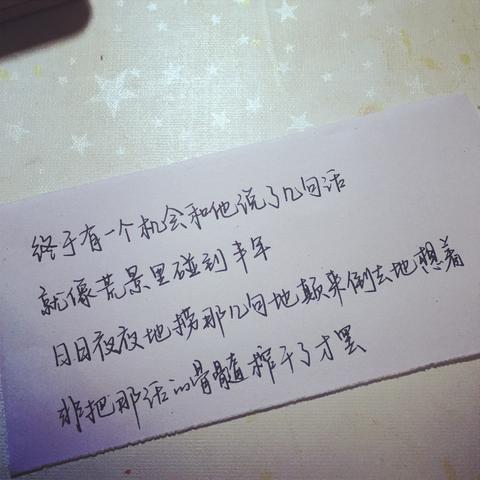 终于有一个机会和他说了几句话
就像荒景里碰到丰年
日日夜夜地捞那几句地颠来倒去地想着
非把那话的骨髓榨干了才罢